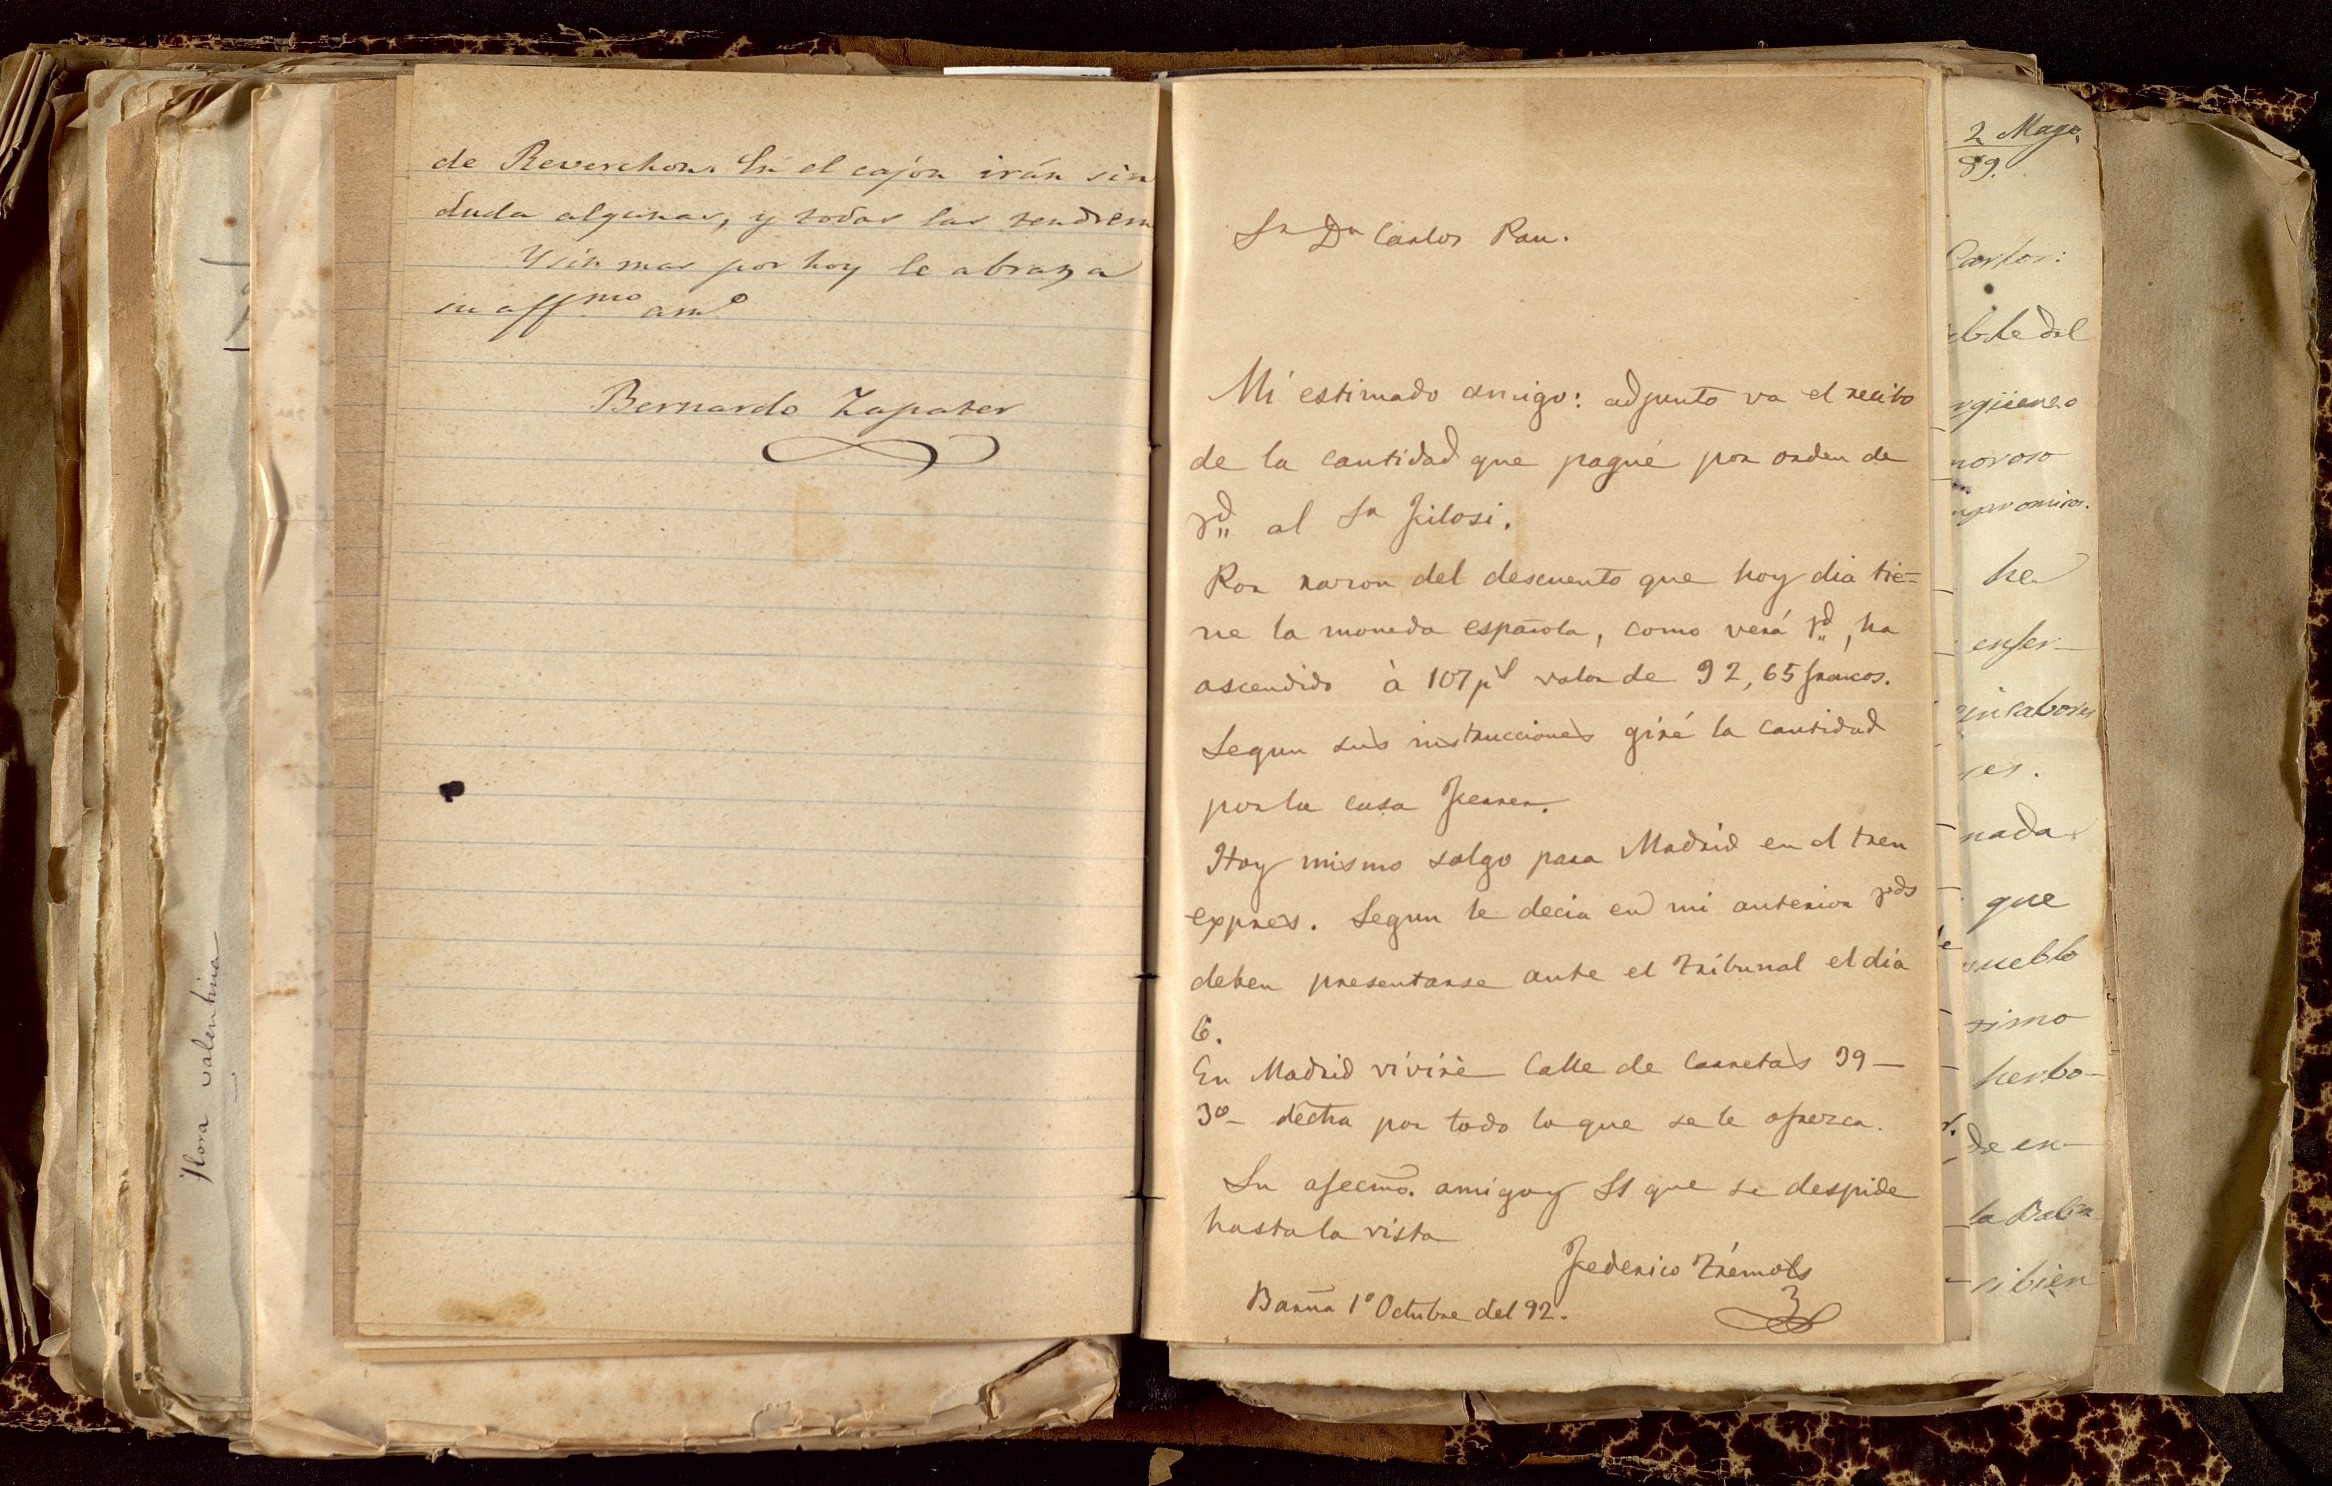 de Reverchon. En el cajón irán sin
duda algunas, y todas las tendrem
Y sin mas por hoy le abraza
su affmo amo
Bernardo Zapater
Flora valentina
Sr Dn Carlos Pau.
Mi estimado amigo: adjunto va el recibo
de la cantidad que pagué por orden de
Vd al Sr Filosi.
Por razon del descuento que hoy dia tie-
ne la moneda española, como verá Vd, ha
ascendido à 107 ps valor de 92,65 francos.
Segun sus instrucciones giré la cantidad
por la casa Ferrer.
Hoy mismo salgo para Madrid en el tren
expres. Segun le decia en mi anterior Vds
deben presentarse ante el Tribunal el dia
6.
En Madrid viviré Calle de Carretas 39-
3º- dectra por todo lo que se le ofrezca.
Su afecmo. amigo y SS que se despide
hasta la vista
Federico Trémols
Barna 1º Octubre del 92.
2 Mayo
89.
Carlos:
he
enfer-
sinsabores
nada
que
pueblo
simo
herbo-
de en-
si bien